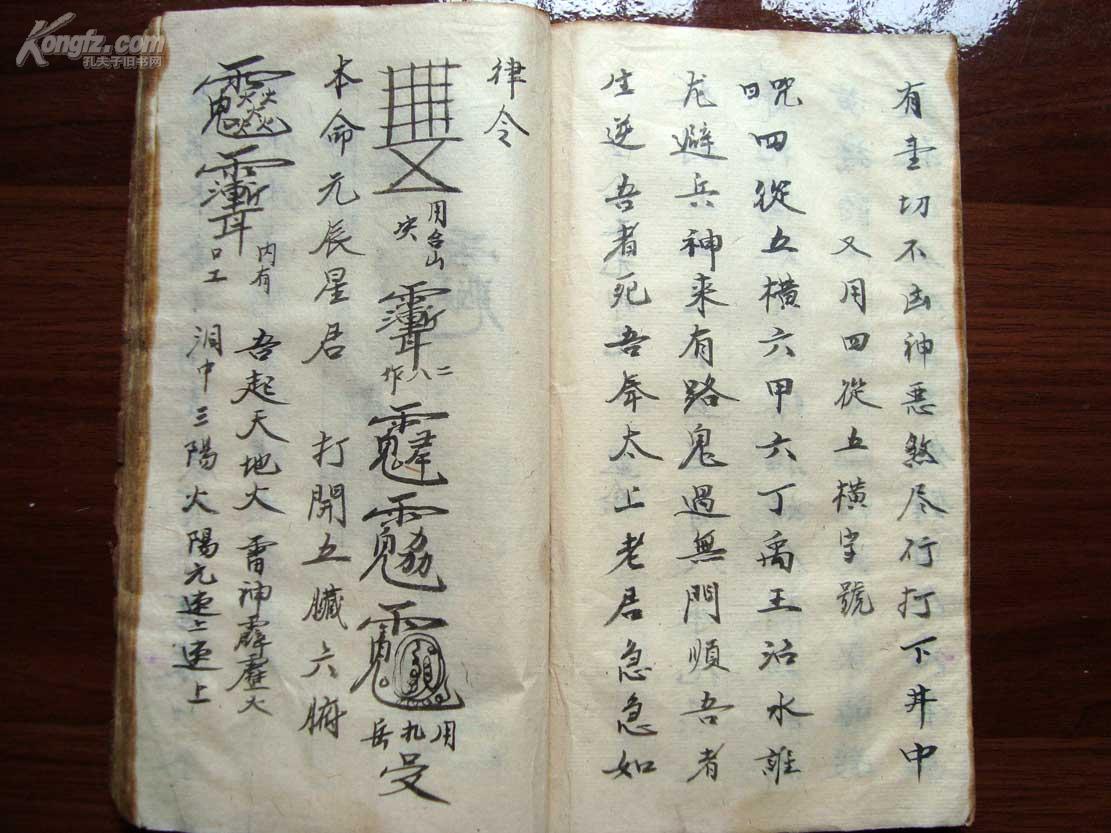 有壹切不凶神恶煞尽行打下井中
又用四從五横字號
咒曰四從五横六甲六丁禹王治水誰
龙避兵神来有路鬼過無門順吾者
生逆吾者死吾奉太上老君急急如
律令
用台山
二八作
用九岳
本命元辰星君 打開五臓六腑
内有
口工
吾起天地火雷神霹靂火
泪中三陽火陽元速上速上
Kongfz.com
孔夫子旧书网